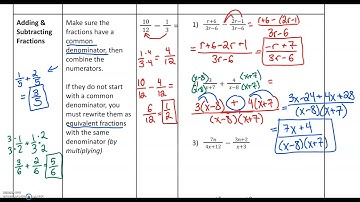 Adding &
Subtracting
Fractions
1/5 + 2/5
= 3/5
3·1/3·2 + 1·2/3·2
3/6 + 2/6 = 5/6
Make sure the
fractions have a
common
denominator, then
combine the
numerators.
If they do not start
with a common
denominator, you
must rewrite them as
equivalent fractions
with the same
denominator (by
multiplying)
10/12 − 1/3 =
1·4/3·4 = 4/12
10/12 − 4/12
6/12 = 1/2
1) r+6/3r−6 − 2r−1/3r−6 = r+6−(2r−1)/3r−6
r+6−2r−1/3r−6 = −r+7/3r−6
(x−8)3/(x−8)x+7 + 4/x−8 (x+7)/(x+7)
3(x−8) + 4(x+7)/(x−8)(x+7) = 3x−24+4x+28/(x−8)(x+7)
= 7x+4/(x−8)(x+7)
3) 7n/4x+12 − 3n+2/x+3